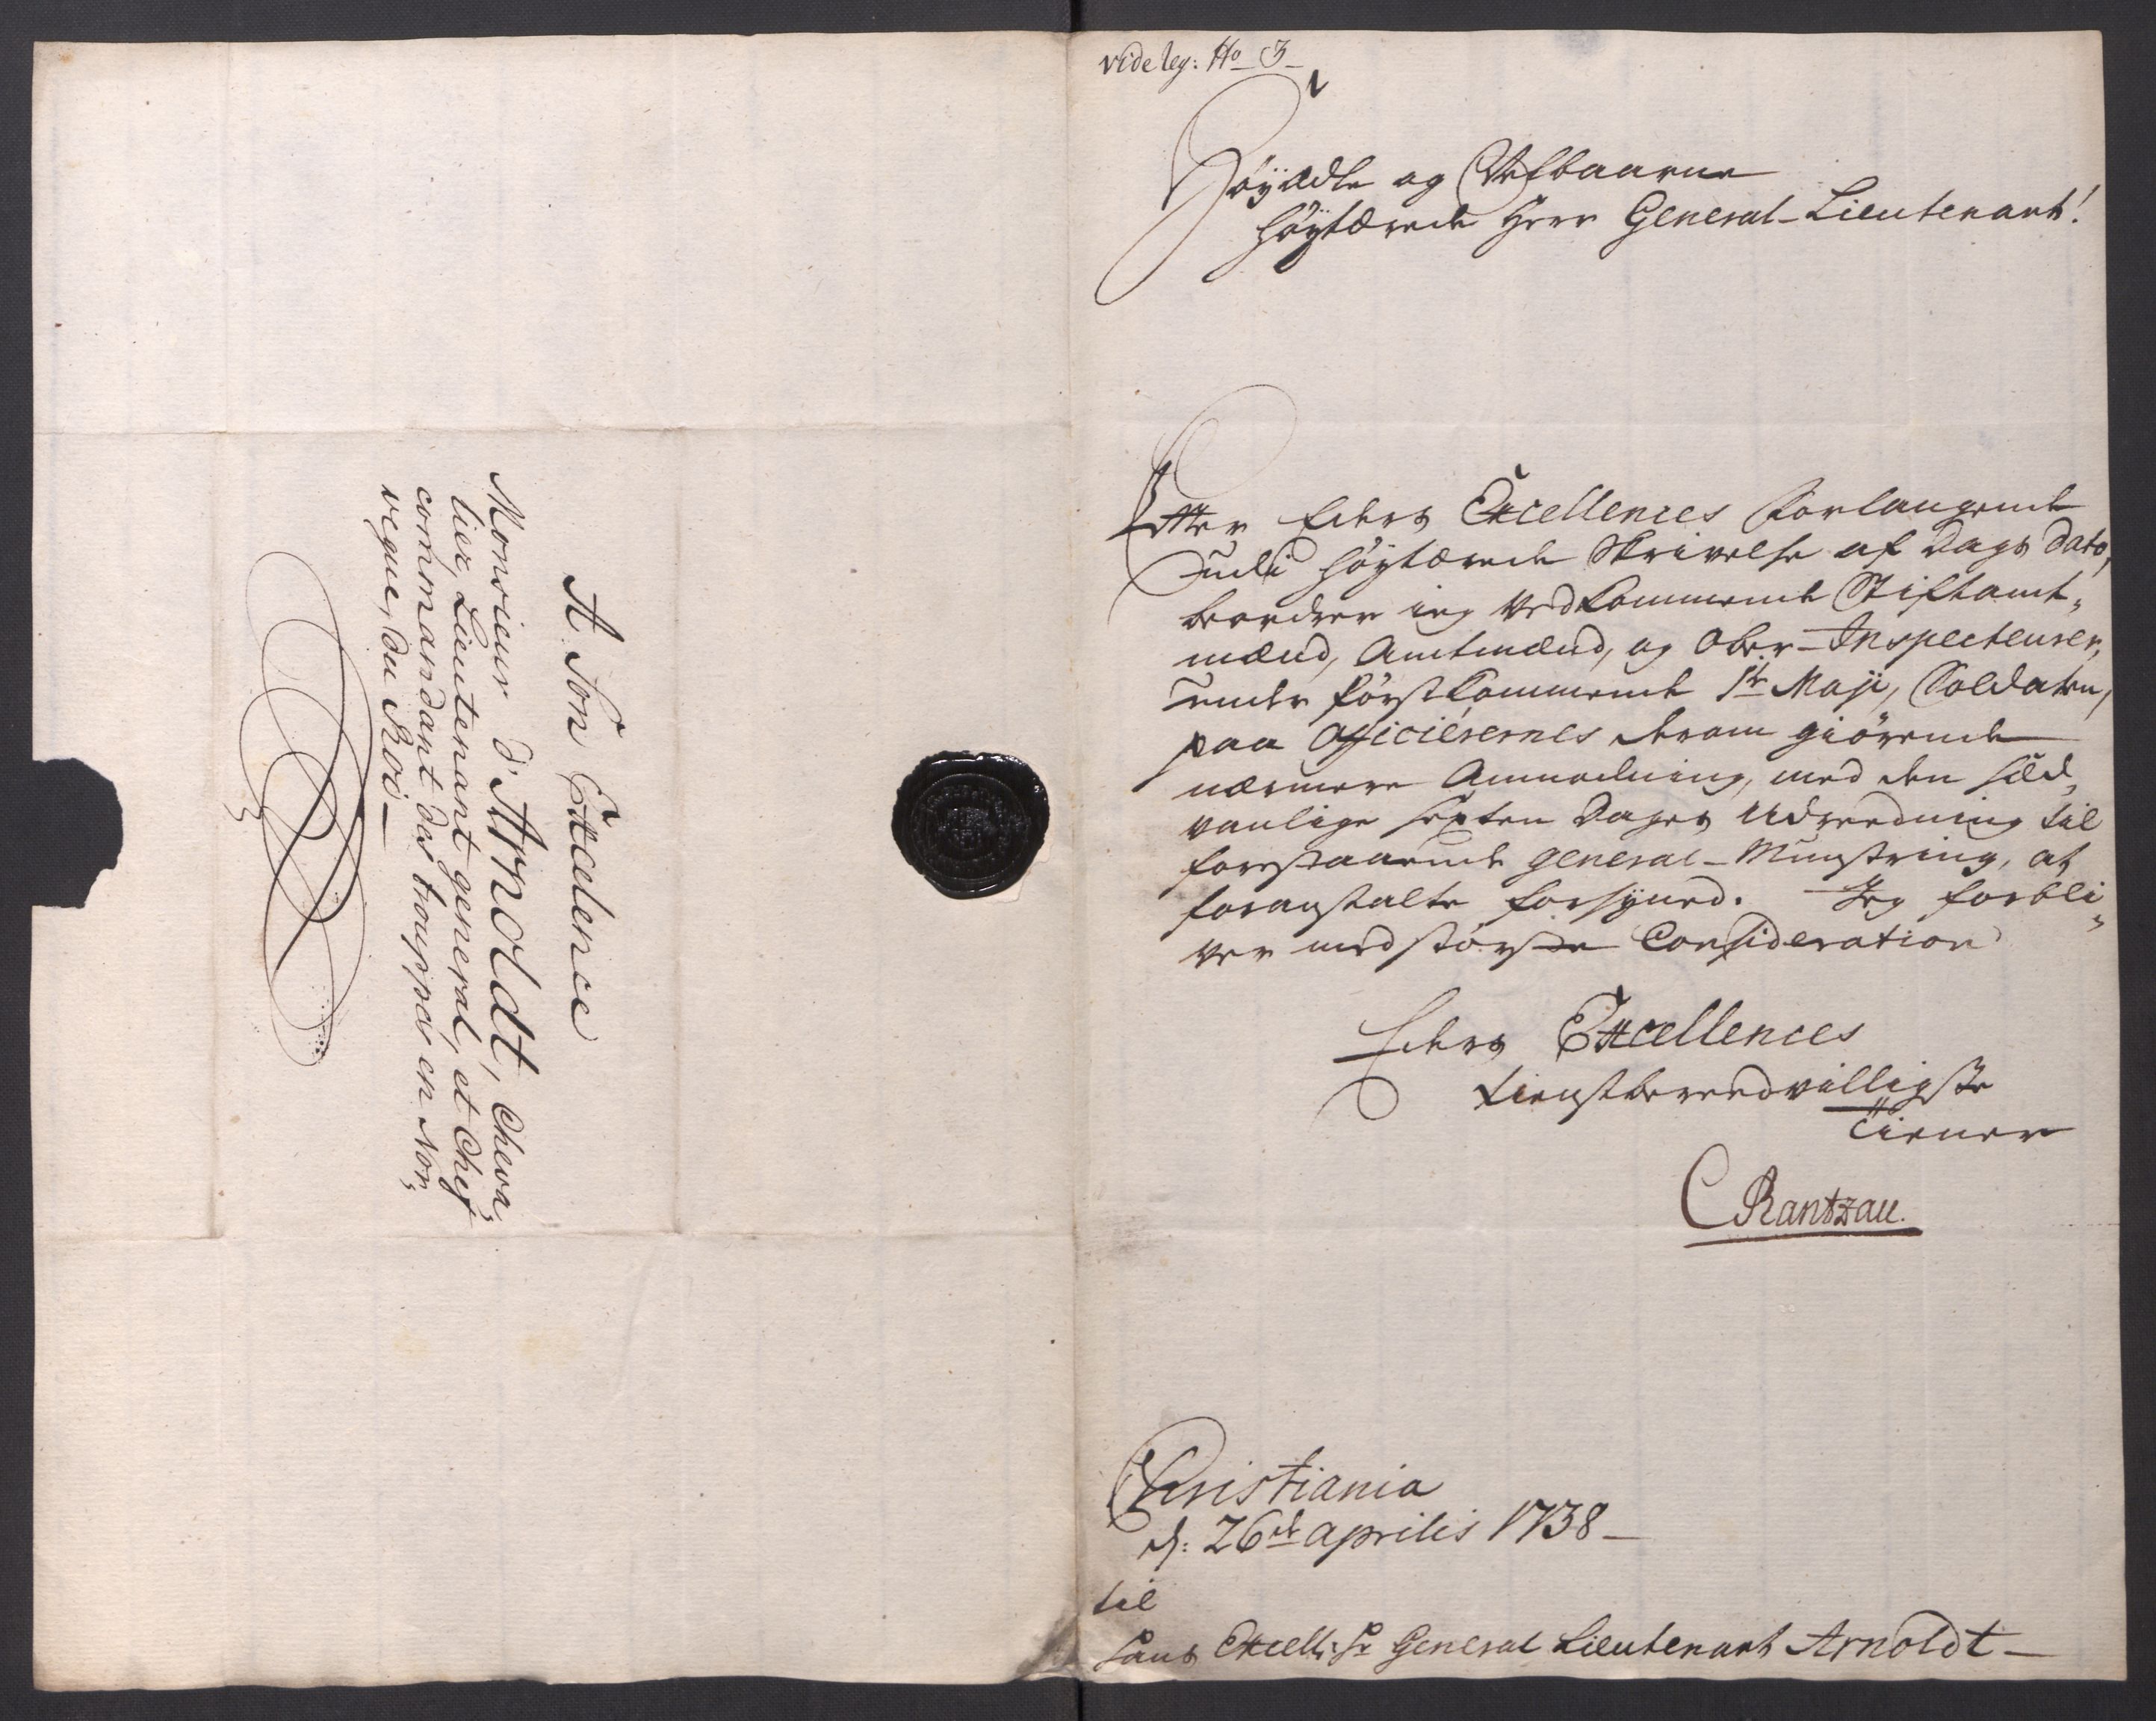 A Son Excelence
Monsieur d'Arnoldt, Cheva,,
lier, Lieutenant general, et Chef
commandant des trouppes en Nor,,
vegue, du Roi —
vide leg: No 3
Høyædle og Velbaarne
Høytærede Herr General-Lieutenant!
Efter Eders Excellences forlangende
udi høytærede Skrivelse af Dags dato,
beordrer ieg vedkommende Stiftamt,,
mænd, Amtmænd, og Ober-Inspecteurer,
under førstkommende 1ste Maji, Soldaten,
paa Officierernes derom giørende
nærmere Anmodning, med den sæd,,
vanlige Dages Udreedning til
forestaaende General-Mynstring, at
foranstalte forsyned. Jeg forbli,,
ver med største Consideration
Eders Excellences
tienstbereedvilligste
tiener
C Rantzau.
Christiania
d: 26de Aprilis 1738 —
til
Hans Excell: Hr General Lieutenant Arnoldt —